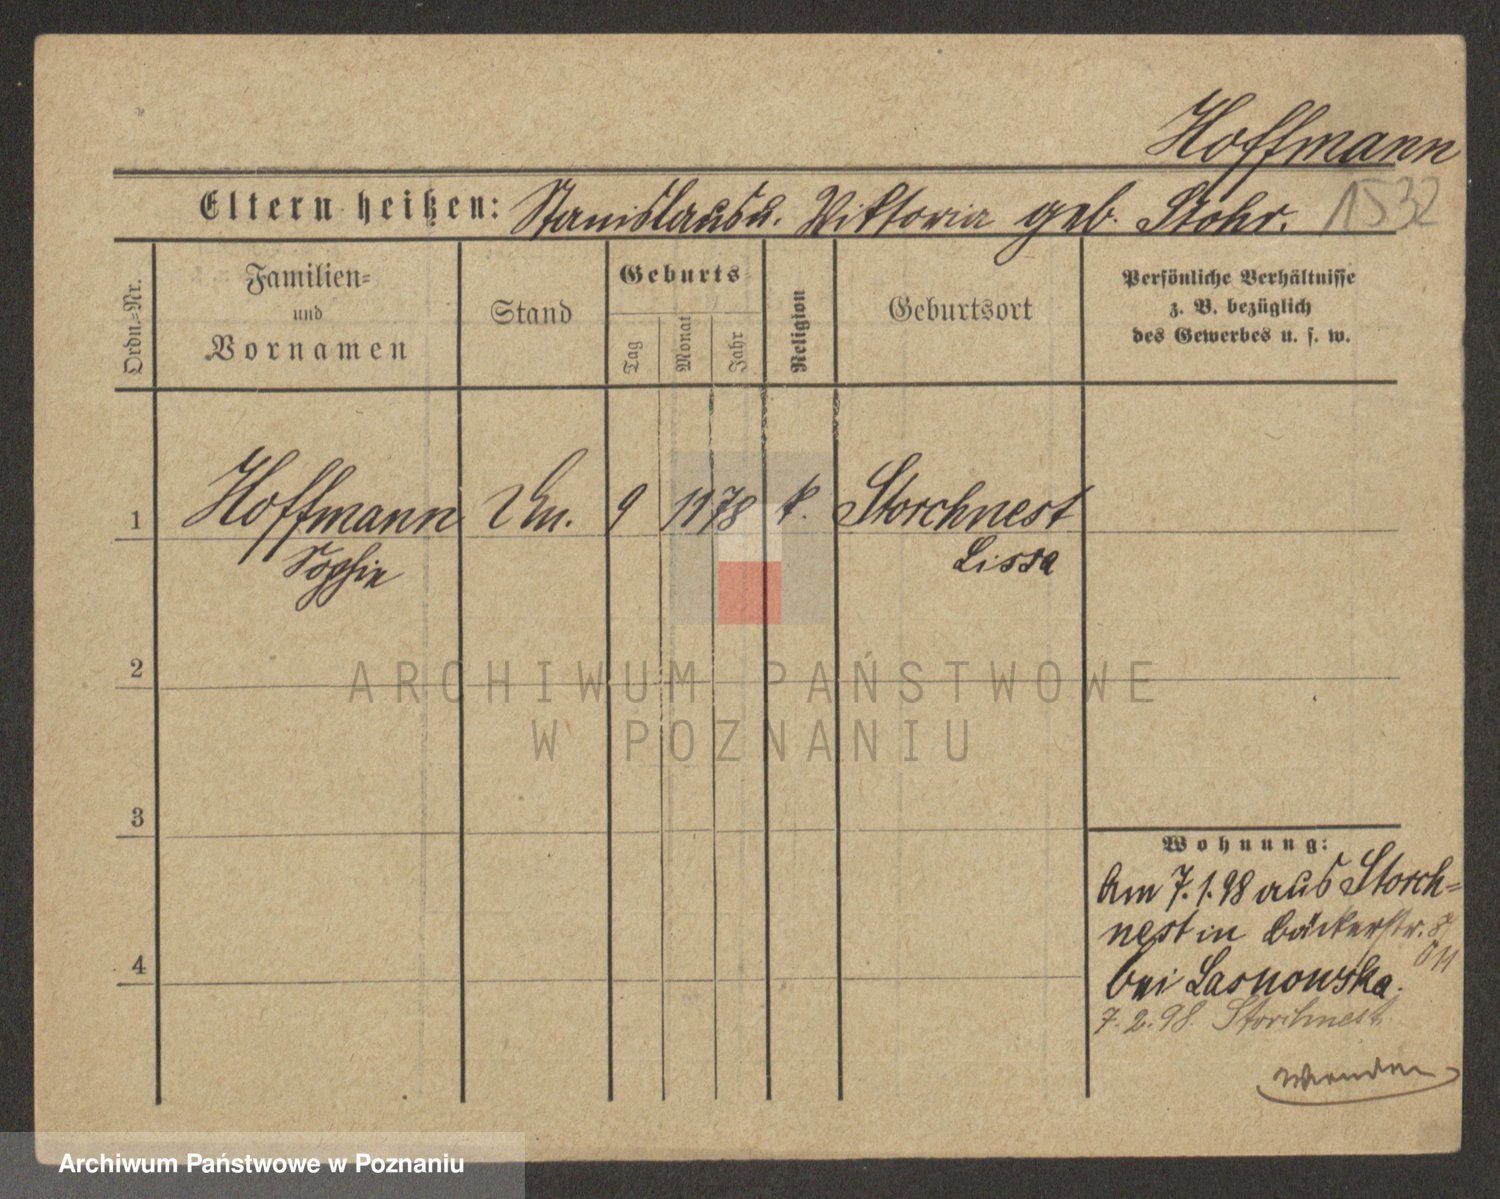 Hoffmann
Eltern heißen: Stanislaus u. Viktoria geb. Stohr.
1532
Ordn.=Nr.
Familien=
und
Vornamen
Stand
Geburts
Tag
Monat
Jahr
Religion
Geburtsort
Persönliche Verhältnisse
z. B. bezüglich
des Gewerbes u. s. w.
1
Hoffmann
Sophie
9
11
78
k.
Storchnest
Lissa
2
3
4
ARCHIWUM PAŃSTWOWE
W POZNANIU
Wohnung:
Am 7.1.98 aus Storch=
nest in Bäckerstr.
bei Lasnowska.
7.2.98. Storchnest
Wenden
Archiwum Państwowe w Poznaniu